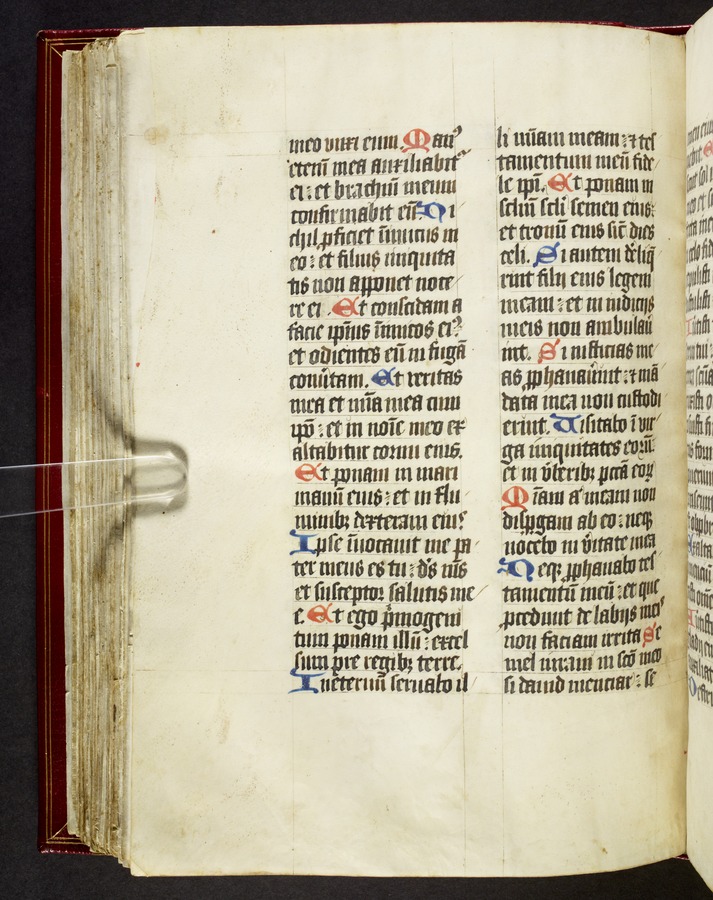 meo vnxi eum. Man᷒
etenī mea auxiliabit᷒
ei : et brachiū meum
confirmabit eū. Ni
chil ꝓficiet inimicus in
eo : et filius iniquita
tis non apponet noce
re ei. Et concidam a
facie ipīus inimicos ei᷒
et odientes eū in fugā
conūtam. Et veritas
mea et mīa mea cum
ipō : et in noīe meo ex
altabitur cornu eius.
Et ponam in mari
manū eius : et in flu
minibꝫ dexteram eius
Ipse inuocauit me pa
ter meus es tu : ds ms
et susceptor salutis me
e. Et ego pͥmogeni
tum ponam illū : excel
sum pre regibꝫ terre.
In eternū seruabo il
li mīam meam : et tes
tamentum meū fide
le ipī. Et ponam in
sclm scli semen eius :
et tronū eius sic dies
celi. Si autem dͤliq̄
rint filij eius legem
meam : et in iudicijs
meis non ambulau
int. Si iusticias me
as ꝓphanauͤint : et mā
data mea non custodi
erint. Uisitabo ī vir
ga iniquitates eoꝝ
et in vͤberibꝫ pctā eoꝝ
Miam aͧ meam non
dispgam ab eo : neqꝫ
nocebo in vͤitate mea
Neqꝫ ꝓphanabo tes
tamentū meū : et que
pcedunt de labijs meis
non faciam irrita Se
mel iuraui in scō meo
si dauid menciar : se